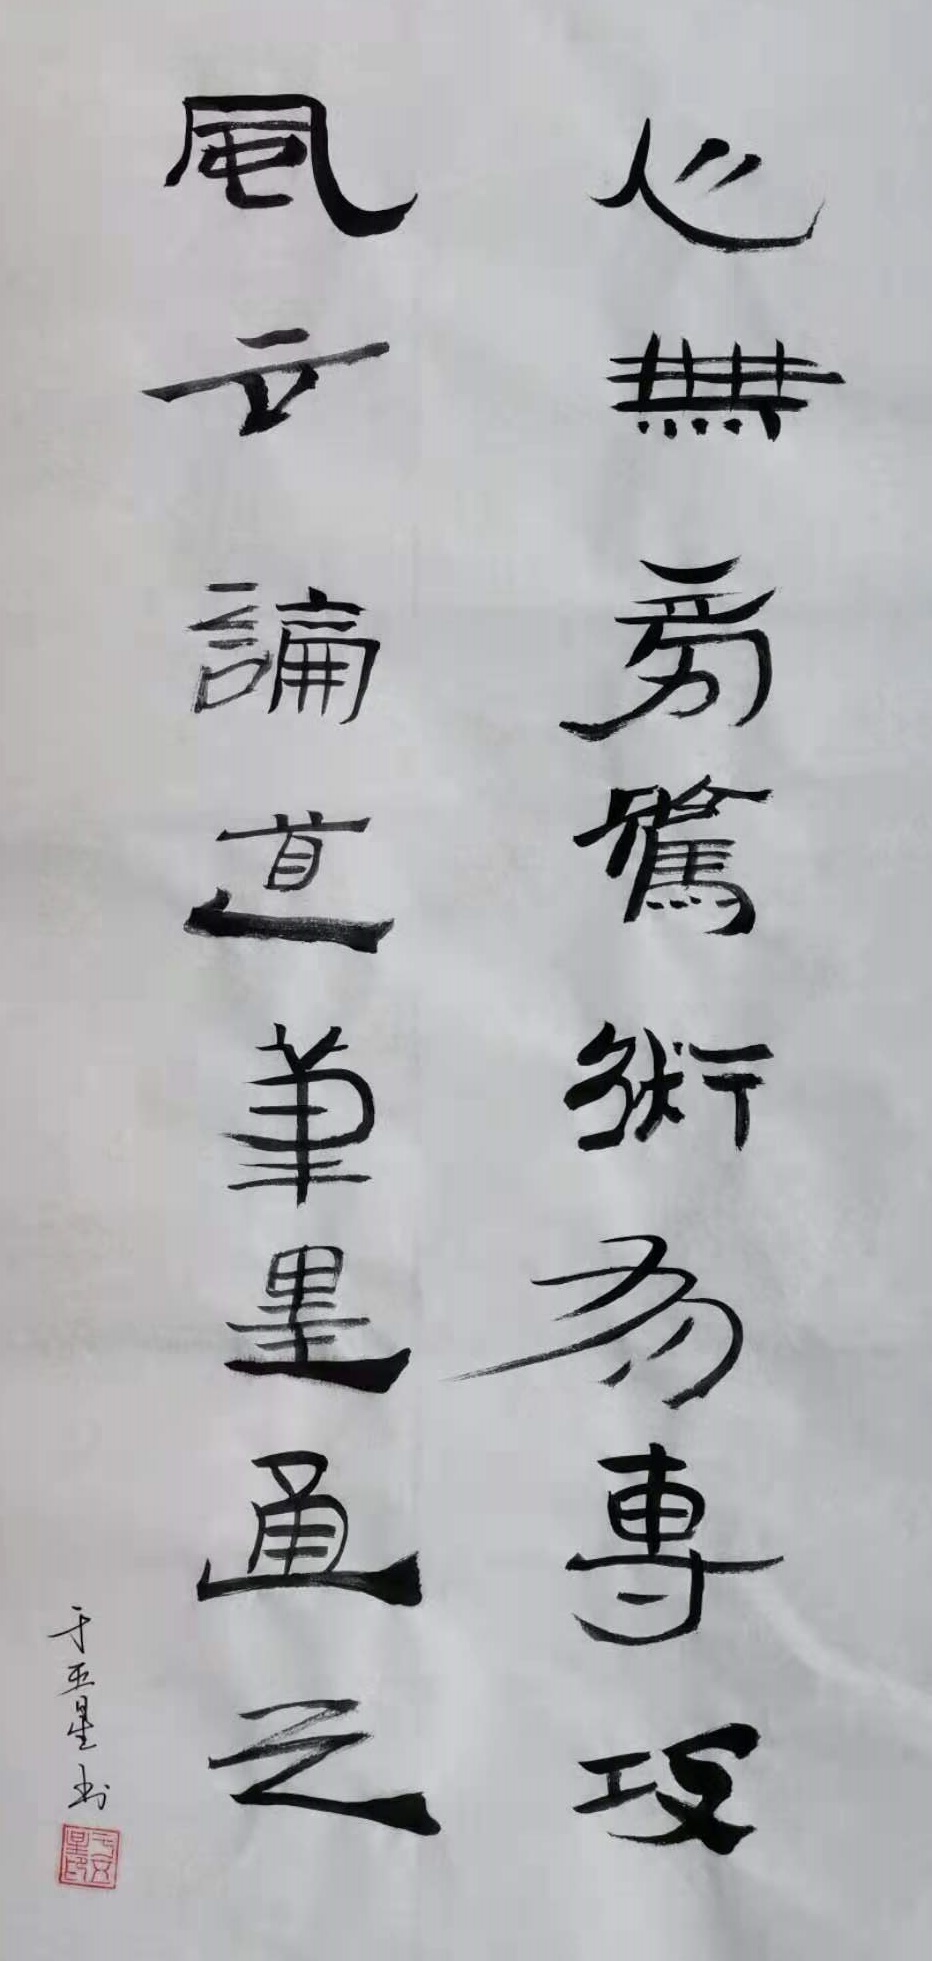 心無旁騖術為專攻
風云論道筆墨通之
于五星书